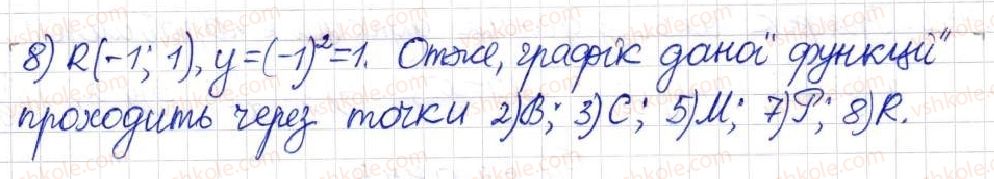 8) R(-1; 1), y=(-1)²=1. Отже, графік даної функції
проходить через точки 2)B; 3)C; 5)M; 7)P; 8)R.